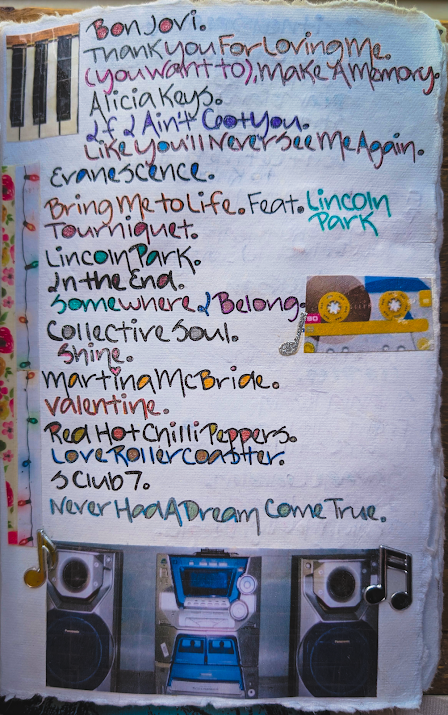 Bon Jovi.
Thank you For Loving Me.
(you want to), Make A Memory.
Alicia Keys.
If I Ain't Got You.
Like You'll Never See Me Again.
Evanescence.
Bring Me to Life. Feat. Lincoln
Park
Tourniquet.
Lincoln Park.
In the End.
Somewhere I Belong.
90
Collective Soul.
Shine.
Martina McBride.
Valentine.
Red Hot Chilli Peppers.
Love Roller Coaster.
S Club 7.
Never Had A Dream Come True.
Panasonic
Panasonic